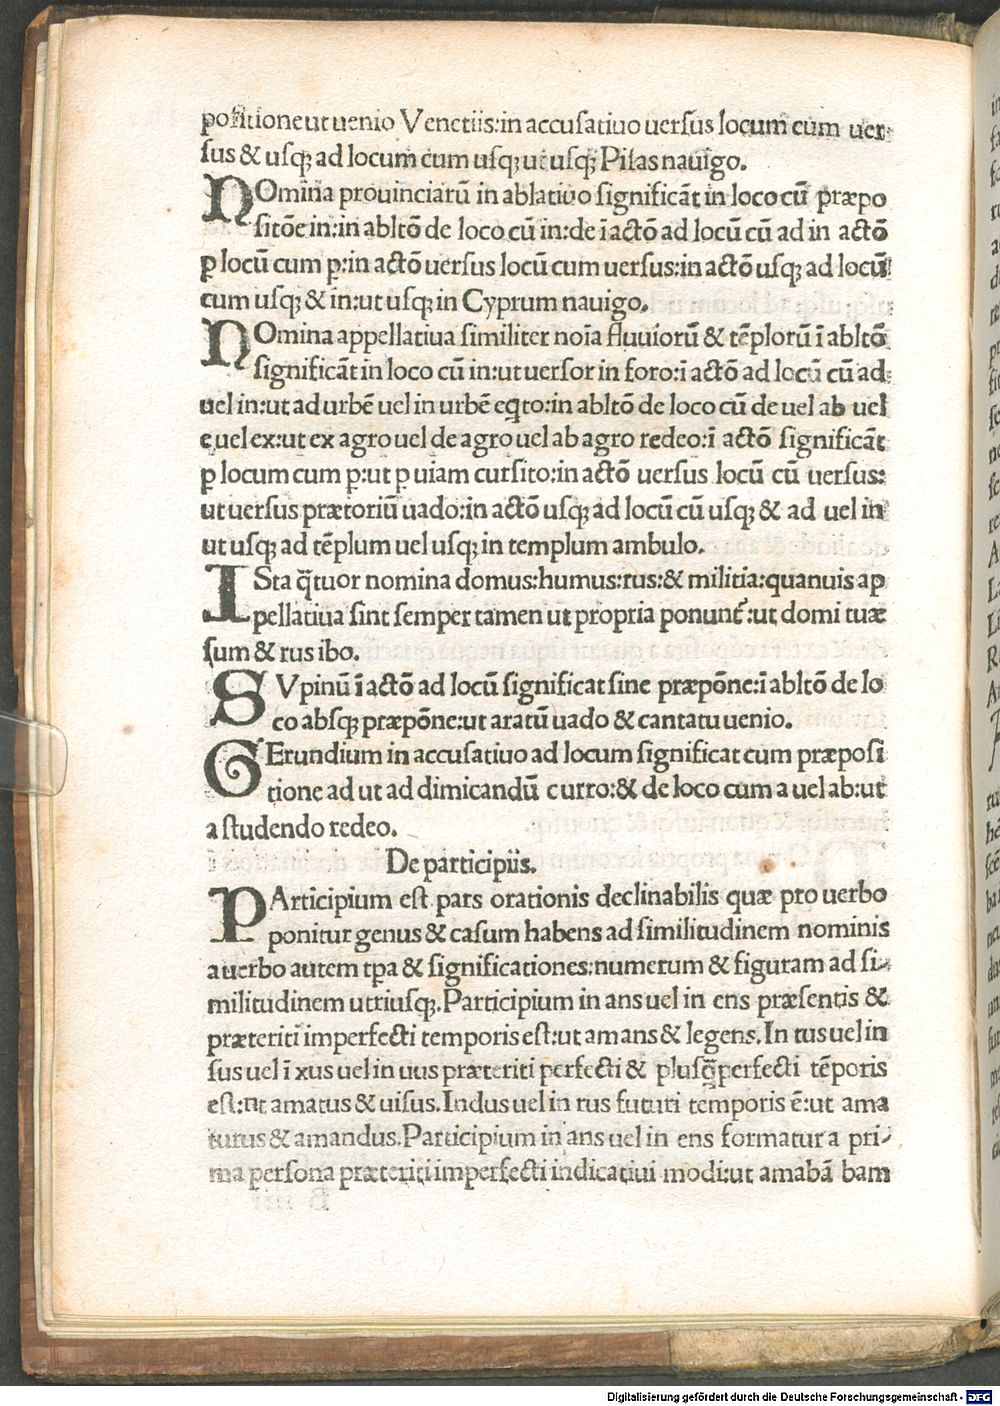 poſitione ut uenio Venetiis:in accuſatiuo uerſus locum cum uer⸗
ſus & uſq; ad locum cum uſq; ut uſq; Piſas nauigo.
NOmina prouinciarū in ablatiuo significāt in loco cū præpo
ſitōe in:in abltō de loco cū in:de ī actō ad locū cū ad in actō
ꝑ locū cum ꝑ:in actō uerſus locū cum uerſus:in actō uſq; ad locū
cum uſq; & in:ut uſq; in Cyprum nauigo.
NOmina appellatiua ſimiliter noīa fluuiorū & tēplorū ī abltō
ſignificāt in loco cū in:ut uerſor in foro:ī actō ad locū cū ad
uel in:ut ad urbē uel in urbē eq̄to:in abltō de loco cū de uel ab uel
e,uel ex:ut ex agro uel de agro uel ab agro redeo:ī actō ſignificāt
ꝑ locum cum ꝑ:ut ꝑ uiam curſito:in actō uerſus locū cū uerſus:
ut uerſus prætoriū uado:in actō uſq; ad locū cū uſq; & ad uel in
ut uſq; ad tēplum uel uſq; in templum ambulo.
ISta q̄tuor nomina domus:humus:rus:& militia:quanuis ap
pellatiua ſint ſemper tamen ut propria ponunt̄:ut domi tuæ
ſum & rus ibo.
SVpinū ī actō ad locū ſignificat ſine præpōne:ī abltō de lo
co abſq; præpōne:ut aratū uado & cantatu uenio.
GErundium in accuſatiuo ad locum ſignificat cum præpoſi
tione ad ut ad dimicandū curro:& de loco cum a uel ab:ut
a ſtudendo redeo.
De participiis.
PArticipium eſt pars orationis declinabilis quæ pro uerbo
ponitur genus & caſum habens ad ſimilitudinem nominis
a uerbo autem tꝑa & ſignificationes:numerum & figuram ad ſi⸗
militudinem utriuſq;.Participium in ans uel in ens præſentis &
præteriti imperfecti temporis eſt:ut amans & legens.In tus uel in
sus uel ī xus uel in uus præteriti perfecti & pluſq̄perfecti tēporis
eſt:ut amatus & uiſus.In dus uel in rus futuri temporis ē:ut ama
turus & amandus.Participium in ans uel in ens formatur a pri⸗
ma perſona præteriti imperfecti indicatiui modi:ut amabā bam
Digitalisierung gefördert durch die Deutsche Forschungsgemeinschaft - DFG